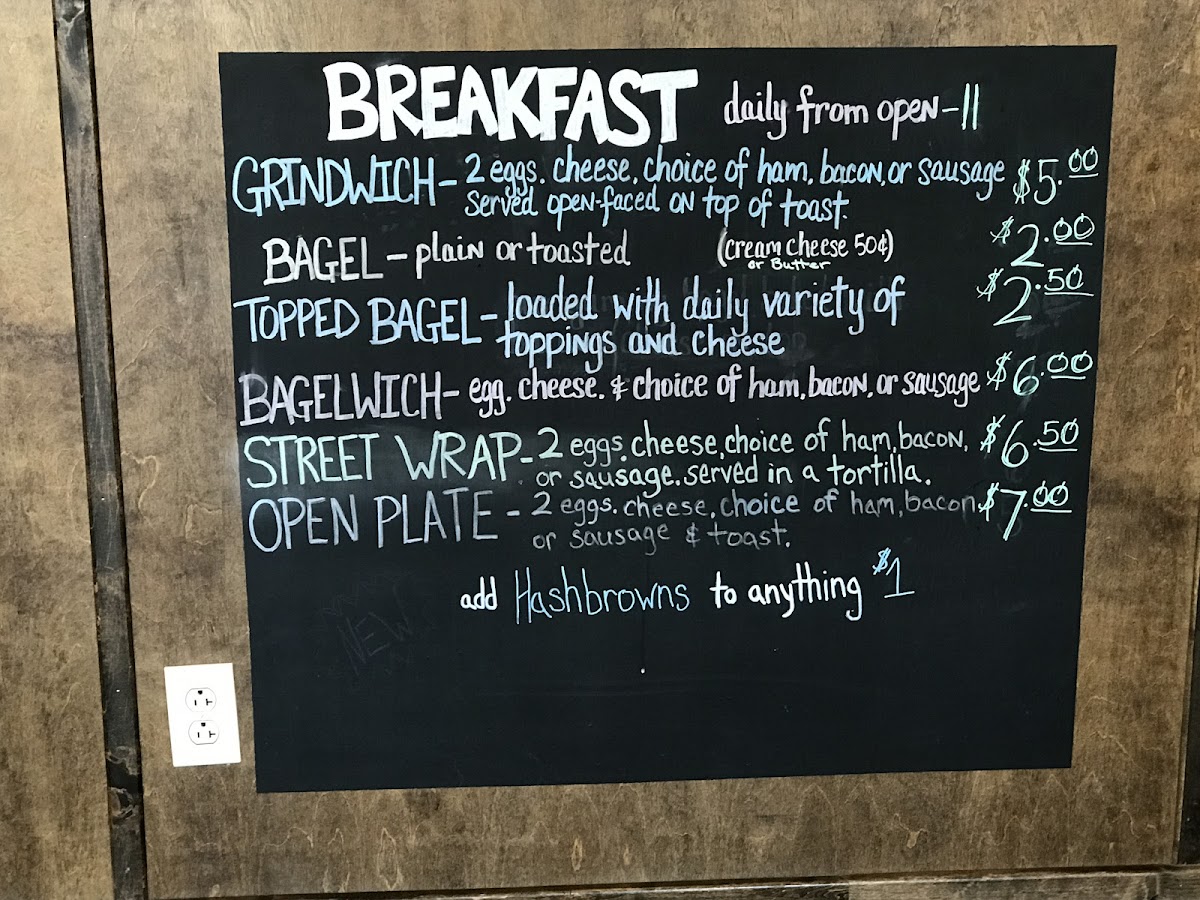 BREAKFAST daily from open-11
GRINDWICH- 2 eggs. cheese, choice of ham, bacon, or sausage $5.00
served open-faced on top of toast.
BAGEL - plain or toasted (cream cheese 50¢) $2.00
or Butter
TOPPED BAGEL - loaded with daily variety of $2.50
toppings and cheese
BAGELWICH- egg. cheese. & choice of ham, bacon, or sausage $6.00
STREET WRAP- 2 eggs. cheese, choice of ham, bacon, $6.50
or sausage. served in a tortilla.
OPEN PLATE - 2 eggs. cheese, choice of ham, bacon, $7.00
or sausage & toast.
add Hashbrowns to anything $1
NEW